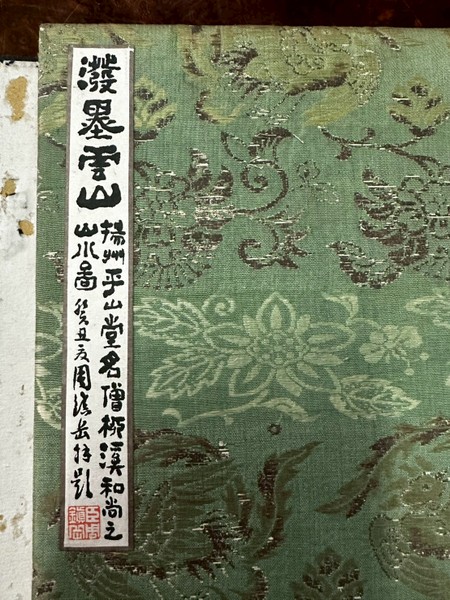 潑墨雲山
揚州平山堂名僧柳溪和尚之
山水圖 癸丑夏周岳拜題